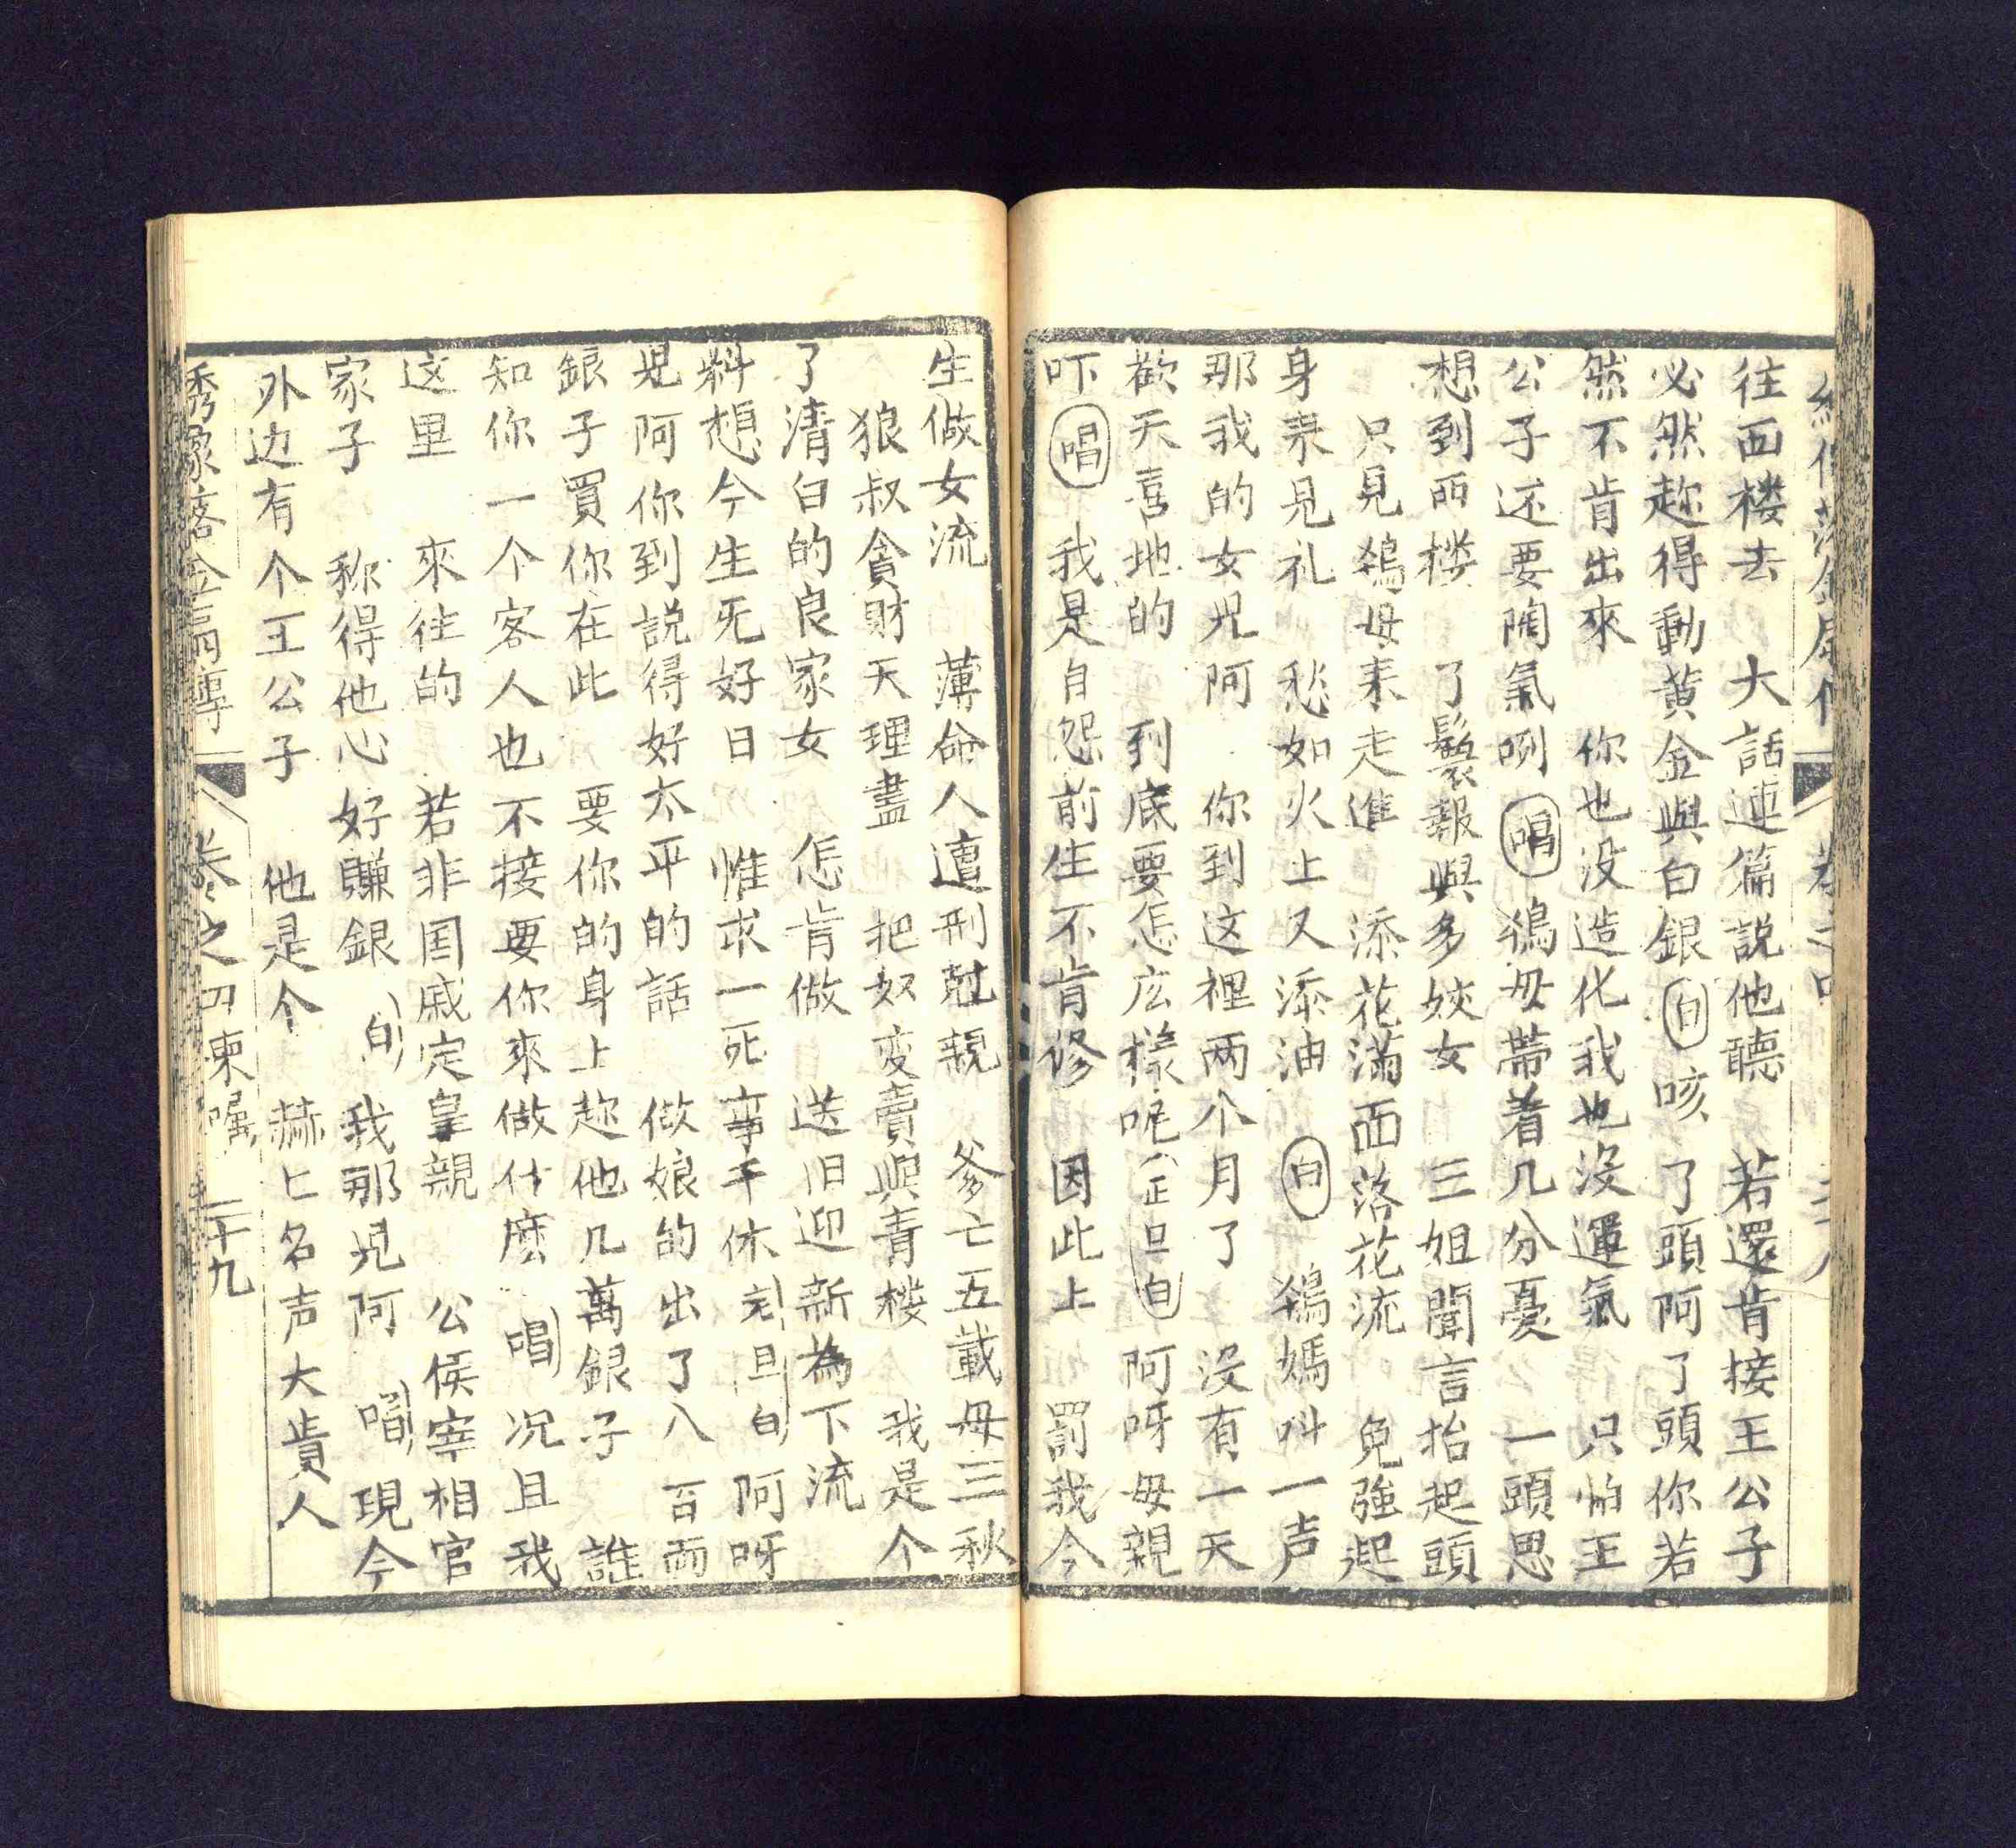 往西楼去　大話連篇説他聽　若還肯接王公子
必然趂得動黄金與白銀 白 咳　了頭阿了頭你若
然不肯出來　你也没造化我也没運氣　只怕王
公子还要陶氣咧 唱 鴇母帶着几分憂　一頭思
想到西楼　了鬟報與多姣女　三姐聞言抬起頭
只見鴇母来走進　添花滿面落花流　免強起
身来見礼　愁如火上又添油 白 鴇媽呌一声
那我的女児阿　你到这裡两个月了　没有一天
歡天喜地的　到底要怎庅樣呢 正旦白 阿呀母親
吓 唱 我是自怨前生不肯修　因此上　罰我今
生做女流　薄命人遭刑尅親　爹亡五載母三秋
狼叔貪財天理盡　把奴变賣與青楼　我是个
了清白的良家女　怎肯做　送旧迎新為下流
料想今生旡好日　惟求一死事干休 旦白 阿呀
児阿你到説得好太平的話　做娘的出了八百両
銀子買你在此　要你的身上趂他几萬銀子　誰
知你一个客人也不接要你來做什麽 唱 况且我
这里　來往的　若非国戚定皇親　公侯宰相官
家子　称得他心好賺銀 白 我那児阿 唱 現今
外边有个王公子　他是个　赫匕名声大貴人
卷之四 二十九